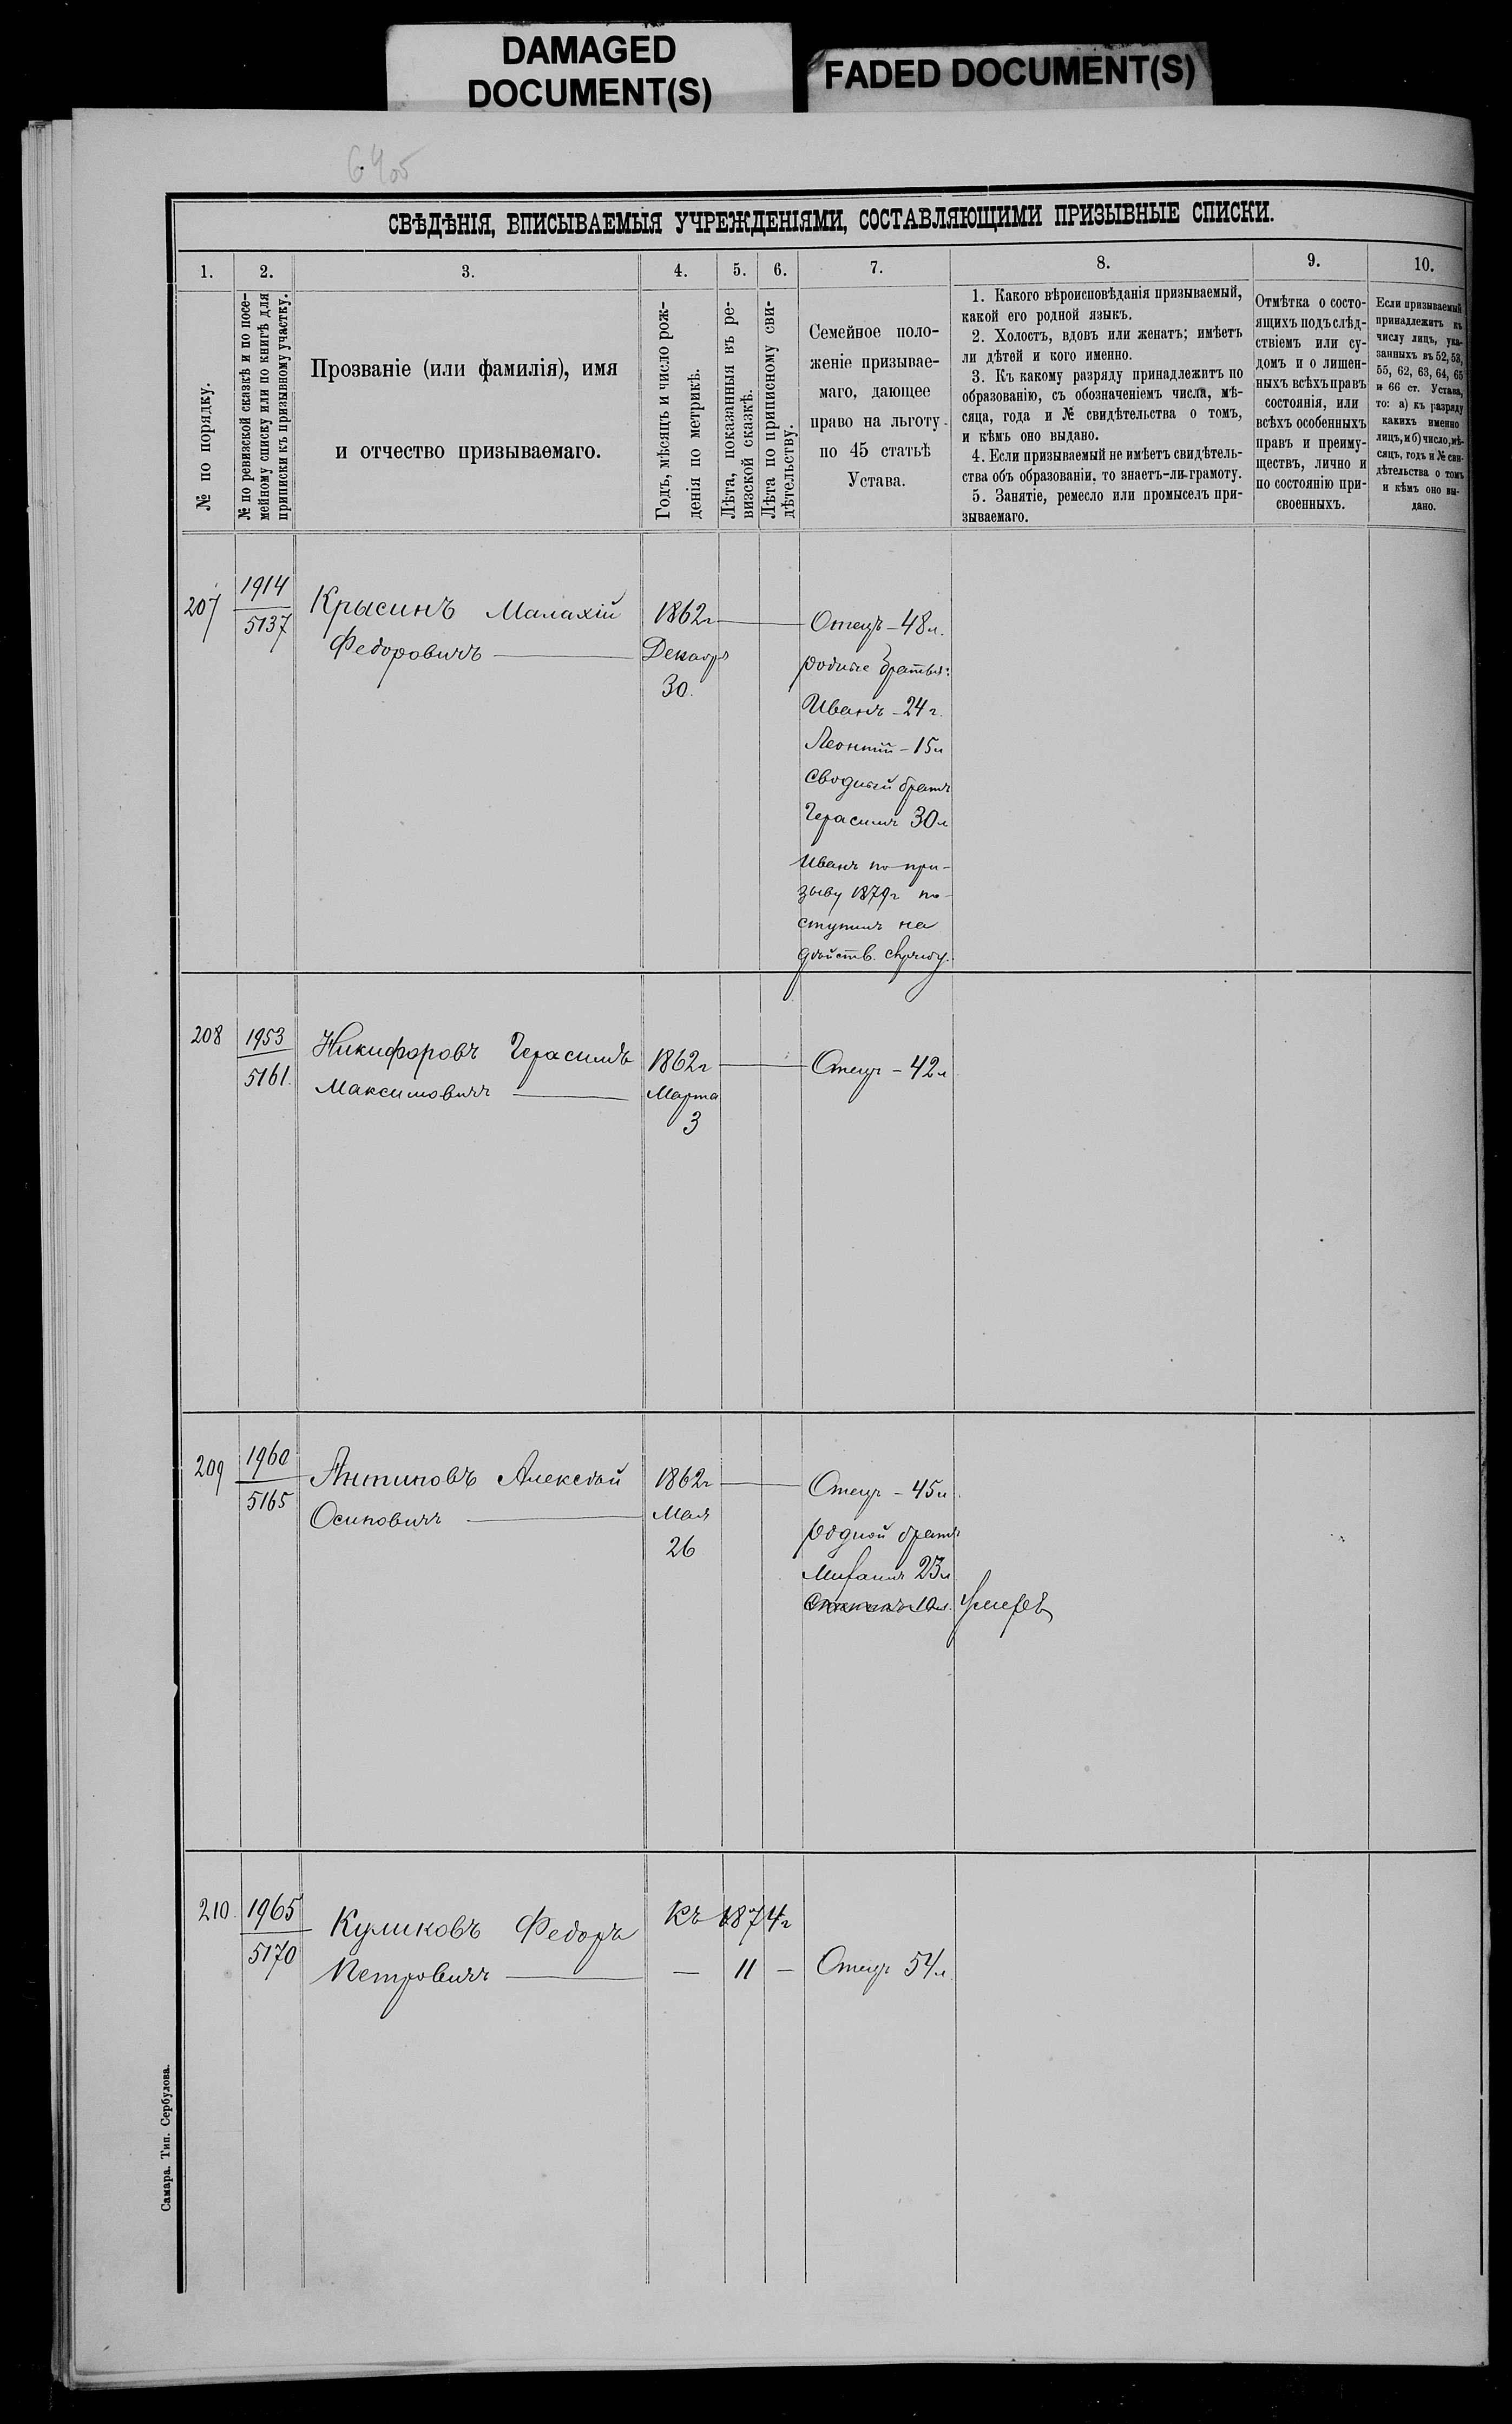 DAMAGED
DOCUMENT(S)
FADED DOCUMENT(S)
6405
СВѢДѢНІЯ, ВПИСЫВАЕМЫЯ УЧРЕЖДЕНІЯМИ, СОСТАВЛЯЮЩИМИ ПРИЗЫВНЫЕ СПИСКИ.
1.
2.
3.
4.
5.
6.
7.
8.
9.
10.
№ по порядку.
№ по ревизской сказкѣ и по посе-
мейному списку или по книгѣ для
приписки къ призывному участку.
Прозваніе (или фамилія), имя
и отчество призываемаго.
Годъ, мѣсяцъ и число рож-
денія по метрикѣ.
Лѣта, показанныя въ ре-
визской сказкѣ.
Лѣта по приписному сви-
дѣтельству.
Семейное поло-
женіе призывае-
маго, дающее
право на льготу
по 45 статьѣ
Устава.
1. Какого вѣроисповѣданія призываемый,
какой его родной языкъ.
2. Холостъ, вдовъ или женатъ; имѣетъ
ли дѣтей и кого именно.
3. Къ какому разряду принадлежитъ по
образованію, съ обозначеніемъ числа, мѣ-
сяца, года и № свидѣтельства о томъ,
и кѣмъ оно выдано.
4. Если призываемый не имѣетъ свидѣтель-
ства объ образованіи, то знаетъ-ли-грамоту.
5. Занятіе, ремесло или промыселъ при-
зываемаго.
Отмѣтка о состо-
ящихъ подъ слѣд-
ствіемъ или су-
домъ и о лишен-
ныхъ всѣхъ правъ
состоянія, или
всѣхъ особенныхъ
правъ и преиму-
ществъ, лично и
по состоянію при-
своенныхъ.
Если призываемый
принадлежитъ къ
числу лицъ, ука-
занныхъ въ 52, 53,
55, 62, 63, 64, 65
и 66 ст. Устава,
то: а) къ разряду
какихъ именно
лицъ, и б) число, мѣ-
сяцъ, годъ и № сви-
дѣтельства о томъ
и кѣмъ оно вы-
дано.
207
1914
5137
Крысинъ Малахій
Федоровичъ
1862г
Декабря
30.
Отецъ - 48л.
родные братья:
Иванъ - 24г.
Леонтій - 15л
Сводный братъ
Герасимъ 30л
Иванъ по при-
зыву 1879г по-
ступилъ на
дѣйств. службу.
208
1953
5161.
Никифоровъ Герасимъ
Максимовичъ
1862г
Марта
3
Отецъ - 42л
209
1960
5165
Антиповъ Алексѣй
Осиповичъ
1862г
Мая
26
Отецъ - 45л.
родной братъ
Михаилъ 23л
Степанъ 10л. Умеръ
210.
1965
5170
Куликовъ Федоръ
Петровичъ
Къ 1874г
— 11 —
Отецъ 54л.
Самара. Тип. Сербулова.